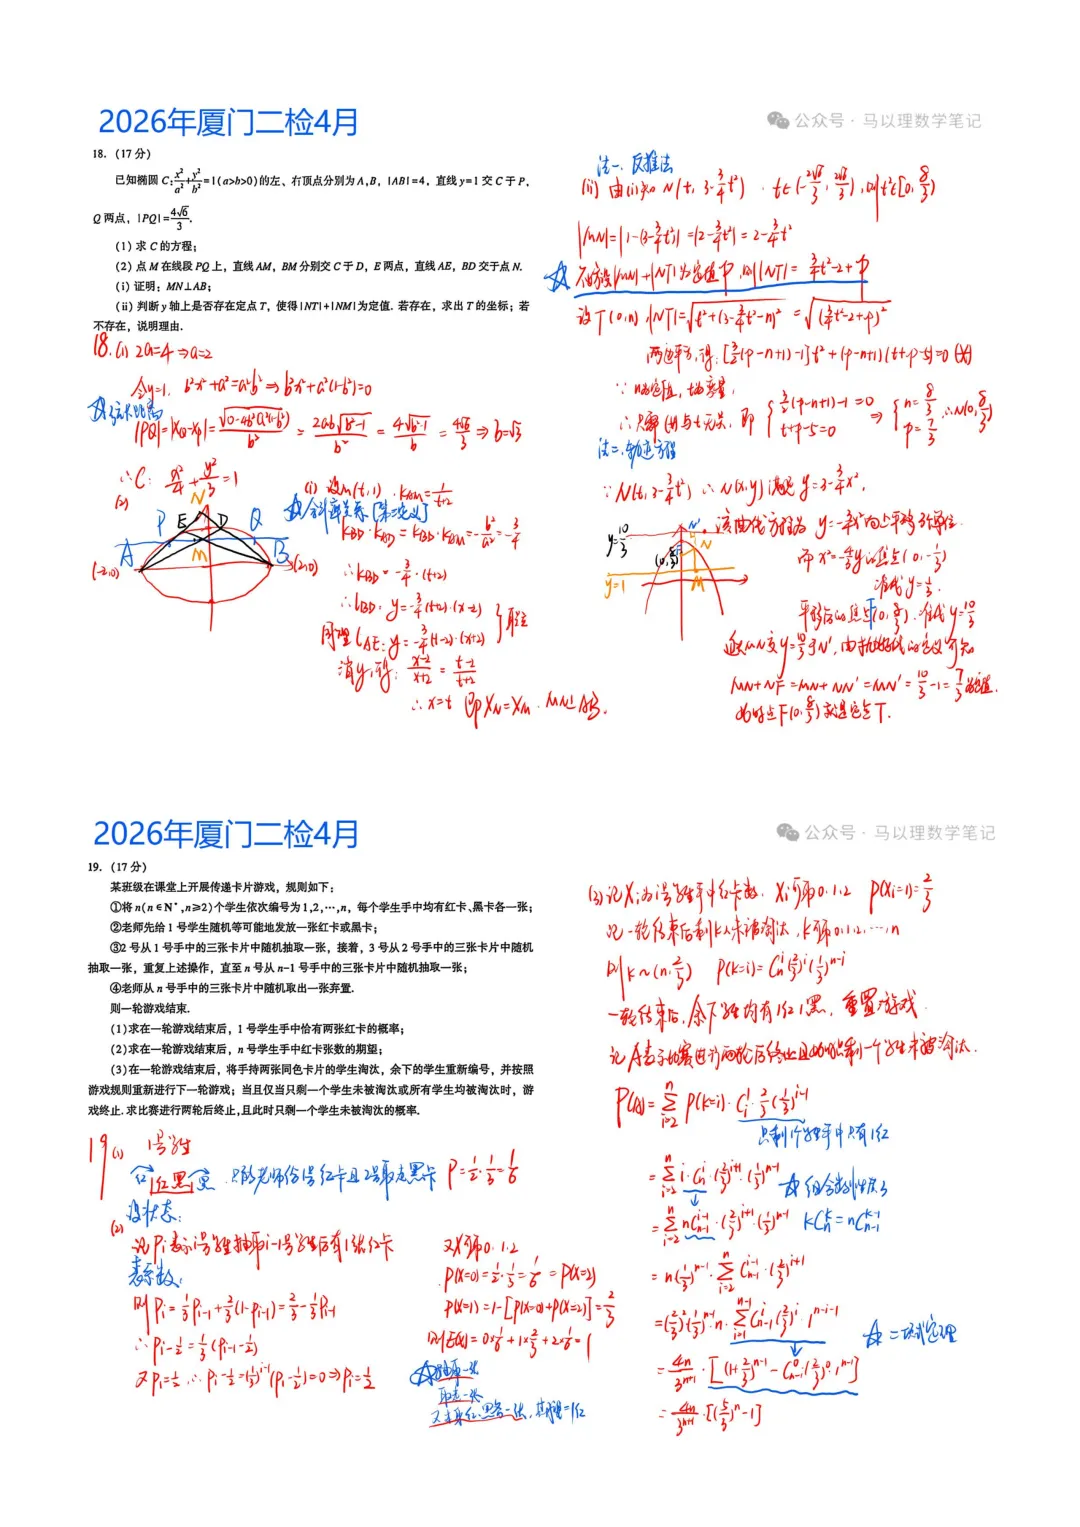 2026年厦门二检4月
公众号 · 马以理数学笔记
18. (17 分)
已知椭圆 C: x²/a² + y²/b² = 1(a>b>0)的左、右顶点分别为 A,B, |AB|=4, 直线 y=1 交 C 于 P,
Q 两点, |PQ|= 4√6/3.
(1) 求 C 的方程;
(2) 点 M 在线段 PQ 上, 直线 AM, BM 分别交 C 于 D, E 两点, 直线 AE, BD 交于点 N.
(i) 证明: MN⊥AB;
(ii) 判断 y 轴上是否存在定点 T, 使得 |NT|+|NM| 为定值. 若存在, 求出 T 的坐标; 若
不存在, 说明理由.
18. (1) 2a=4 ⇒ a=2
令y=1, b²x²+a²=a²b² ⇒ b²x²+a²(1-b²)=0
|PQ|=|x_Q-x_P|= √(0-4b²a²(1-b²))/b² = 2ab√(b²-1)/b² = 4√(b²-1)/b = 4√6/3 ⇒ b=√3
∴C: x²/4 + y²/3 = 1
(2)
N
P E D Q
A M B
(-2,0) (2,0)
(i) 设M(t,1), k_AM = 1/(t+2)
k_BD·k_AD = k_BD·k_AM = -b²/a² = -3/4
∴k_BD = -3/4·(t+2)
∴l_BD: y=-3/4(t+2)·(x-2)
同理 l_AE: y=-3/4(t-2)·(x+2)
联立
消y,得: (x-2)/(x+2) = (t-2)/(t+2)
∴x=t 即 x_N=x_M. MN⊥AB.
法一. 反推法
(ii) 由(i)知 N(t, 3-3/4t²), t∈(-2√6/3, 2√6/3), 则t²∈[0, 8/3)
|MN|=|1-(3-3/4t²)|=|2-3/4t²|=2-3/4t²
不妨设|MN|+|NT|为定值P, 则|NT|=3/4t²-2+P
设T(0,n), |NT|=√(t²+(3-3/4t²-n)²) = √((3/4t²-2+p)²)
法二. 轨迹方程
∵N(t,3-3/4t²) ∴N(x,y)满足 y=3-3/4x²,
y=10/3
(0,8/3)
N'
N
y=1
M
该曲线方程为 y=-3/4x²向上平移3个单位
而 x²=-4/3y的焦点(0,-1/3)
准线 y=1/3.
平移后的焦点F(0,8/3), 准线 y=10/3
MN+NF=MN+NN'=MN'=10/3-1=7/3为定值.
2026年厦门二检4月
公众号 · 马以理数学笔记
19. (17 分)
某班级在课堂上开展传递卡片游戏, 规则如下:
①将 n(n∈N*,n≥2)个学生依次编号为 1,2,⋯,n, 每个学生手中均有红卡、黑卡各一张;
②老师先给 1 号学生随机等可能地发放一张红卡或黑卡;
③2 号从 1 号手中的三张卡片中随机抽取一张, 接着, 3 号从 2 号手中的三张卡片中随机
抽取一张, 重复上述操作, 直至 n 号从 n-1 号手中的三张卡片中随机抽取一张;
④老师从 n 号手中的三张卡片中随机取出一张弃置.
则一轮游戏结束.
(1)求在一轮游戏结束后, 1 号学生手中恰有两张红卡的概率;
(2)求在一轮游戏结束后, n 号学生手中红卡张数的期望;
(3)在一轮游戏结束后, 将手持两张同色卡片的学生淘汰, 余下的学生重新编号, 并按照
游戏规则重新进行下一轮游戏; 当且仅当只剩一个学生未被淘汰或所有学生均被淘汰时, 游
戏终止. 求比赛进行两轮后终止, 且此时只剩一个学生未被淘汰的概率.
19 (1) 1号学生
红 1红1黑 黑 . 只能老师给1号红卡且2号取走黑卡 P=1/2·1/3=1/6
设状态:
(2) 记Pi表示i号学生抽取i-1号学生后有1张红卡
则Pi=1/3P_{i-1}+2/3(1-P_{i-1})=2/3-1/3P_{i-1}
又X可取0.1.2
P(X=0)=1/2·1/3=1/6=P(X=2)
P(X=1)=1-[P(X=0)+P(X=2)]=2/3
则E(X)=0×1/6+1×2/3+2×1/6=1
(3) 记Xi为i号学生手中红卡数. Xi可取0.1.2 P(Xi=1)=2/3
记一轮结束后剩k人未被淘汰, k可取0,1,2,⋯,n
则k~(n,2/3) P(k=i)=C_n^i(2/3)^i(1/3)^{n-i}
一轮结束后, 余下学生均有1红1黑, 重置游戏.
记A表示比赛进行两轮后终止且此时只剩一个学生未被淘汰.
P(A)=Σ_{i=2}^n P(k=i)·C_i^1·2/3·(1/3)^{i-1}
只剩1个学生手中只有1红
=Σ_{i=2}^n i·C_n^i·(2/3)^{i+1}·(1/3)^{n-1} 组合数性质
=Σ_{i=2}^n nC_{n-1}^{i-1}·(2/3)^{i+1}·(1/3)^{n-1} kC_n^k=nC_{n-1}^{k-1}
=n(1/3)^{n-1}·Σ_{i=2}^n C_{n-1}^{i-1}·(2/3)^{i+1}
=(2/3)²(1/3)^{n-1}·n·Σ_{i=1}^{n-1} C_{n-1}^i(2/3)^i·1^{n-1-i} 二项式定理
=4n/3^{n+1}·[(1+2/3)^{n-1}-C_{n-1}^0·(2/3)^0·1^{n-1}]
=4n/3^{n+1}·[(5/3)^n-1]